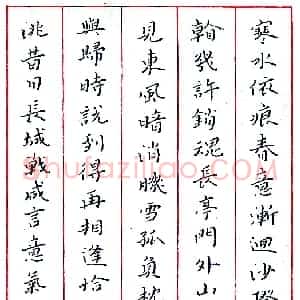 寒水依痕春意漸迴沙際
幾許銷魂長亭門外山
見東風暗消肌雪孤負枕
與歸時說到得再相逢恰
洮昔日長城戰咸言意氣
Shufaziliao.com